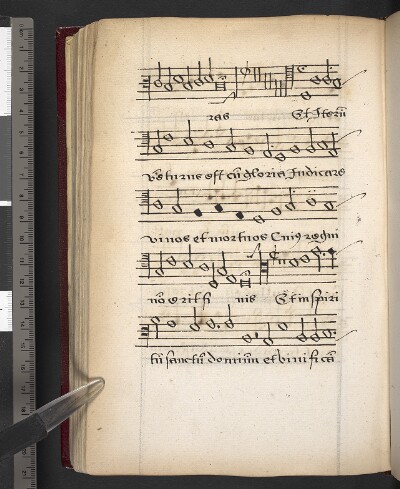 ras Et Iterū
vēturus est cū gloria Iudicare
vivos et mortuos Cuiꝰ regni
nō erit fi nis Et in spiri
tū sanctū dominū et vivificā